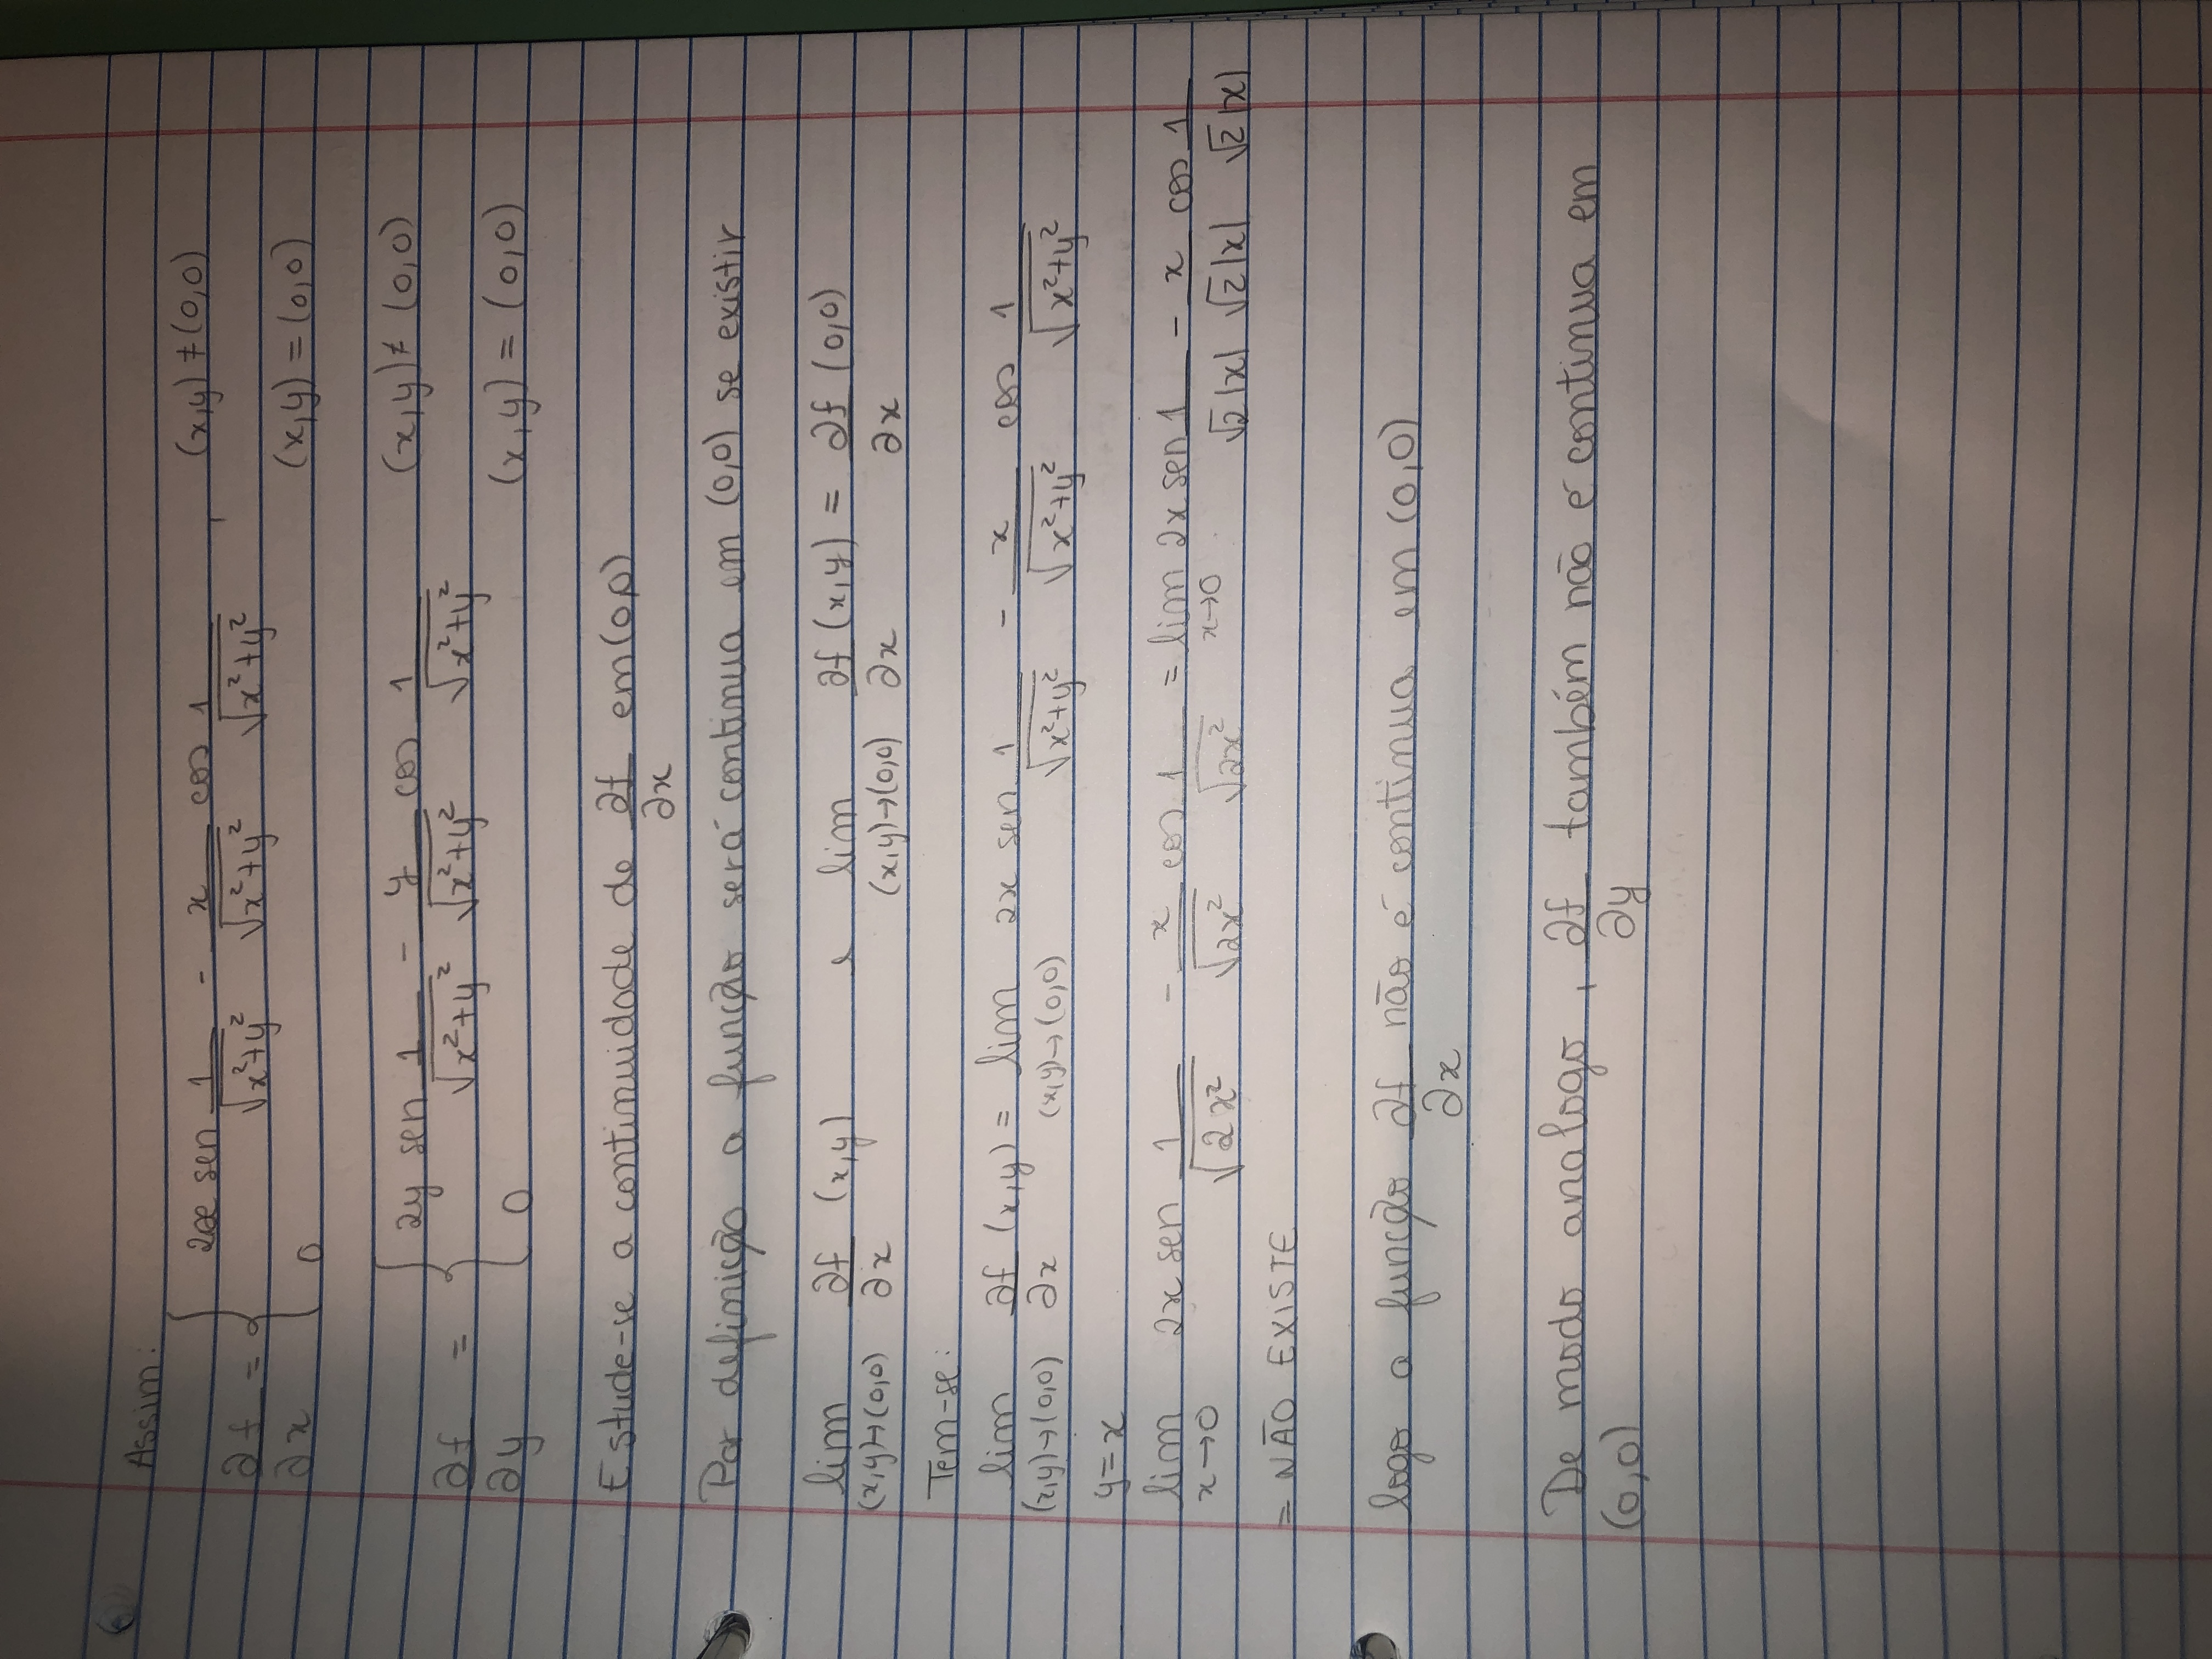 Assim:
∂f/∂x = { 2x sen 1/√(x²+y²) - x/√(x²+y²) cos 1/√(x²+y²) , (x,y) ≠ (0,0)
0 (x,y) = (0,0)
∂f/∂y = { 2y sen 1/√(x²+y²) - y/√(x²+y²) cos 1/√(x²+y²) (x,y) ≠ (0,0)
0 (x,y) = (0,0)
Estude-se a continuidade de ∂f/∂x em (0,0)
Por definição a função será continua em (0,0) se existir
lim (x,y)→(0,0) ∂f/∂x (x,y) e lim (x,y)→(0,0) ∂f/∂x (x,y) = ∂f/∂x (0,0)
Tem-se:
lim (x,y)→(0,0) ∂f/∂x (x,y) = lim (x,y)→(0,0) 2x sen 1/√(x²+y²) - x/√(x²+y²) cos 1/√(x²+y²)
y=x
lim x→0 2x sen 1/√(2x²) - x/√(2x²) cos 1/√(2x²) = lim x→0 2x sen 1/(√2|x|) - x/(√2|x|) cos 1/(√2|x|)
= NÃO EXISTE
logo a função ∂f/∂x não é continua em (0,0)
De modo analogo, ∂f/∂y também não é continua em
(0,0)